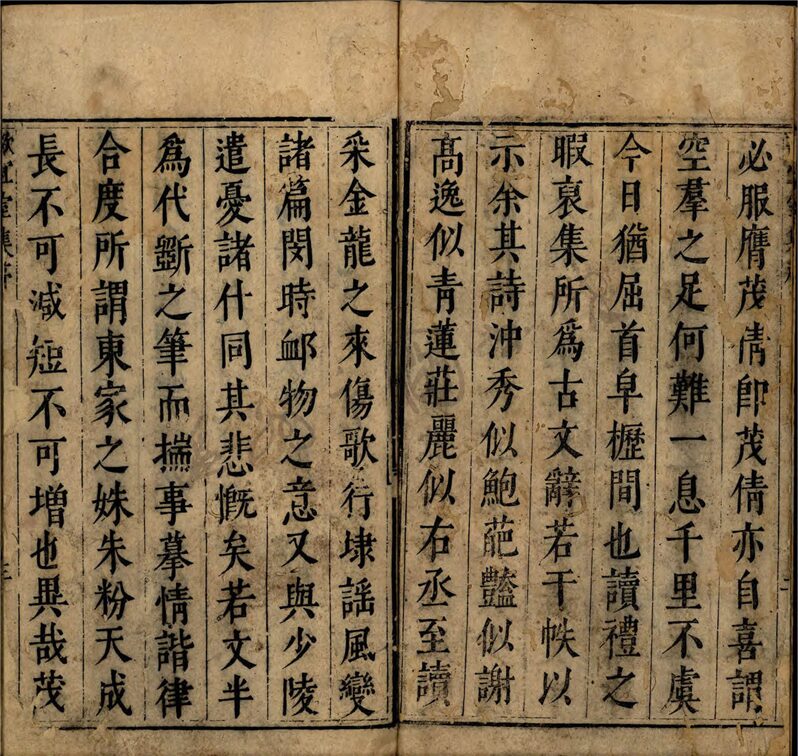 必服膺茂倩即茂倩亦自喜謂
空羣之足何難一息千里不虞
今日猶屈首皁櫪間也讀禮之
暇裒集所爲古文辭若干帙以
示余其詩沖秀似鮑葩豔似謝
高逸似青蓮莊麗似右丞至讀
采金龍之來傷歌行埭謡風變
諸篇閔時䘏物之意又與少陵
遣憂諸什同其悲慨矣若文半
爲代斲之筆而揣事摹情諧律
合度所謂東家之姝朱粉天成
長不可減短不可增也異哉茂